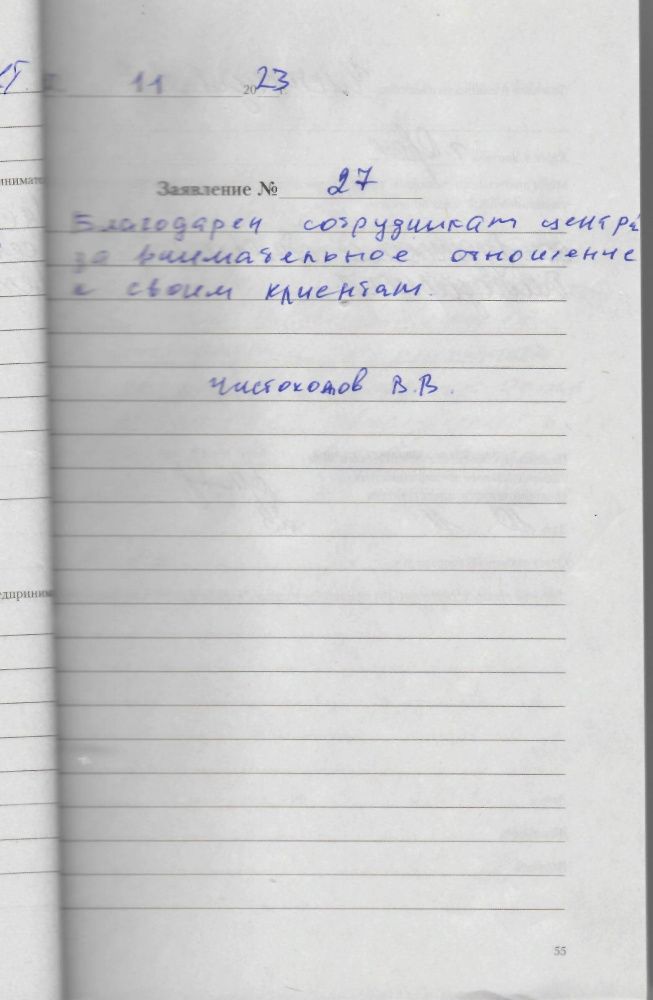 11 2023
Заявление № 27
Благодарен сотрудникам центра
за внимательное отношение
к своим клиентам.
Чистоходов В.В.
55